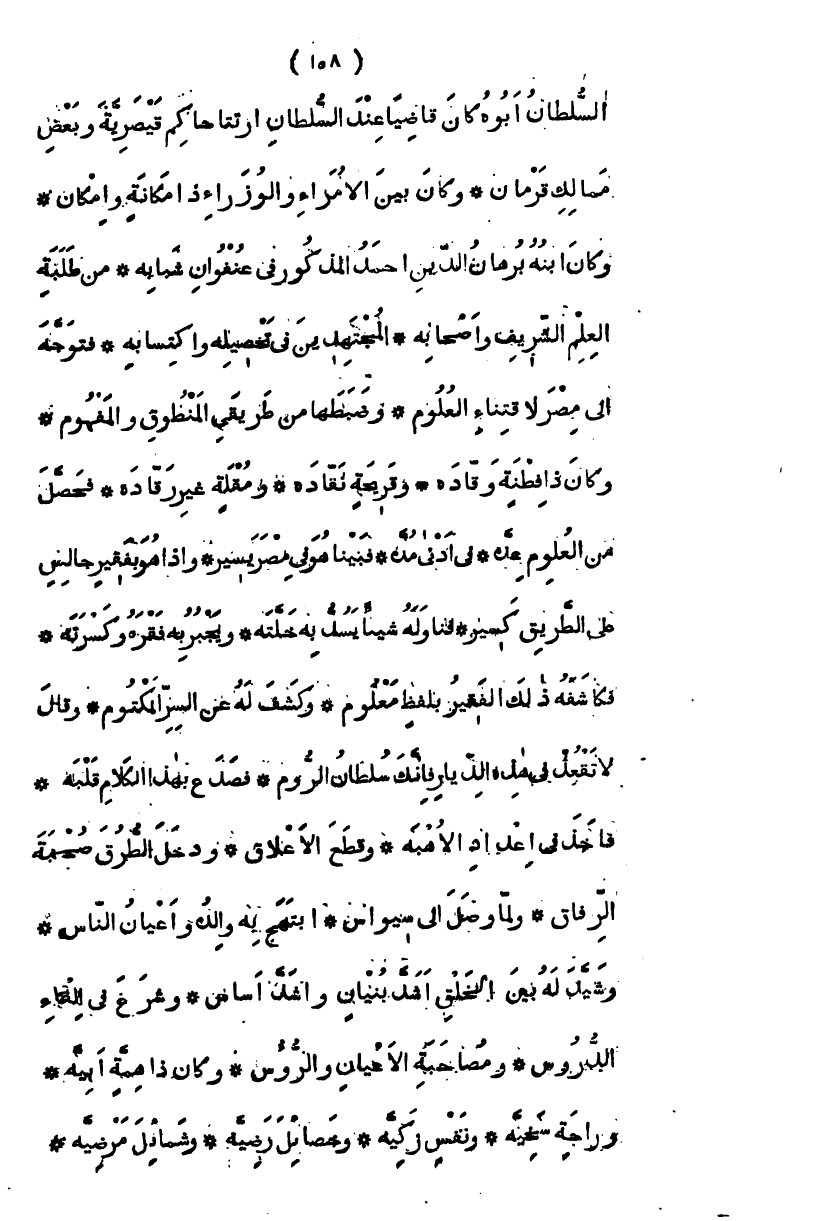 ( ١٠٨ )
السُّلطانُ اَبُوهُ كانَ قاضِيًا عِنْدَ السُّلطانِ ارتنا حاكِمِ قَيْصَرِيَّةَ وبَعْضِ
مَمالِكِ قَرْمان * وكانَ بينَ الاُمَراءِ والوُزَراءِ ذا مَكانَةٍ واِمْكان *
وكانَ ابنُهُ بُرهانُ الدّينِ احمدُ المذكُور فى عُنْفُوانِ شَبابِه * من طَلَبَةِ
العِلْمِ الشّرِيفِ واَصْحابِه * المُجْتَهِدِينَ فى تَحْصِيلِه واكتِسابِه * فتوَجَّهَ
الى مِصْرَ لاقتِناءِ العُلُوم * وضَبَطَها من طَرِيقَيِ المَنْطُوقِ والمَفْهُوم *
وكانَ ذا فِطْنَةٍ وَقّادَه * وقَرِيحَةٍ نَقّادَه * ومُقْلَةٍ غيرِ رَقّادَه * فحَصَّلَ
من العُلُومِ عِدَّه * فى اَدْنٰى مُدَّه * فبَيْنا هُوَ فى مِصْرَ يَسِير * واذا هُوَ بفَقِيرٍ جالِسٍ
على الطَّرِيقِ كَسِير * فناوَلَهُ شيئاً يَسُدُّ بِه خَلَّتَه * ويَجْبُرُ بِه فَقْرَهُ وكَسْرَتَه *
فكاشَفَهُ ذٰلكَ الفَقِيرُ بلفظٍ مَعْلُوم * وكَشَفَ لَهُ عن السِرِّ المَكْتُوم * وقالَ
لا تَقْعُدْ فى هٰذِه الدِّيارِ فاِنَّكَ سُلطانُ الرُّوم * فصَدَعَ بهٰذا الكلامِ قَلْبَه *
فاَخَذَ فى اِعْدادِ الاُهْبَه * وقطَعَ الاَعْلاق * ودخَلَ الطُّرُقَ صُحْبَةَ
الرِّفاق * ولمّا وصَلَ الى سِيواس * ابتَهَجَ بِه والِدُه واَعْيانُ النّاس *
وشَيَّدَ لَهُ بينَ الخَلْقِ اَشَدَّ بُنْيانٍ واشَدَّ اَساس * وشرَعَ فى اِلْقاءِ
الدُّرُوس * ومُصاحَبَةِ الاَعْيانِ والرُّؤُس * وكان ذا هِمَّةٍ اَبِيَّه *
وراحَةٍ سَخِيَّه * ونَفْسٍ زَكِيَّه * وخَصائِلَ رَضِيَّه * وشَمائِلَ مَرْضِيَّه *